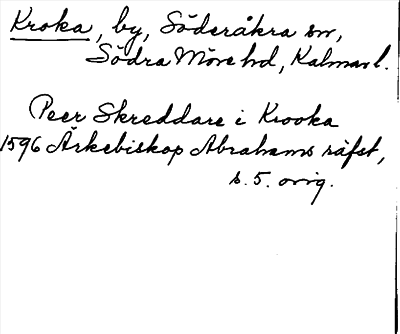 Kroka, by, Söderåkra sn,
Södra Möre hd, Kalmar l.
Peer Skreddare i Krooka
1596 Ärkebiskop Abrahams räfst,
s. 5. orig.